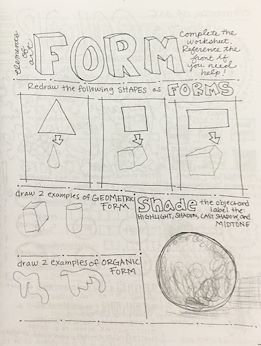 elements of art
FORM
Complete the
worksheet.
Reference the
front if
you need
help!
Redraw the following SHAPES as FORMS
draw 2 examples of GEOMETRIC
FORM
Shade the object and
label the:
HIGHLIGHT, SHADOW, CAST SHADOW, AND
MIDTONE
draw 2 examples of ORGANIC
FORM